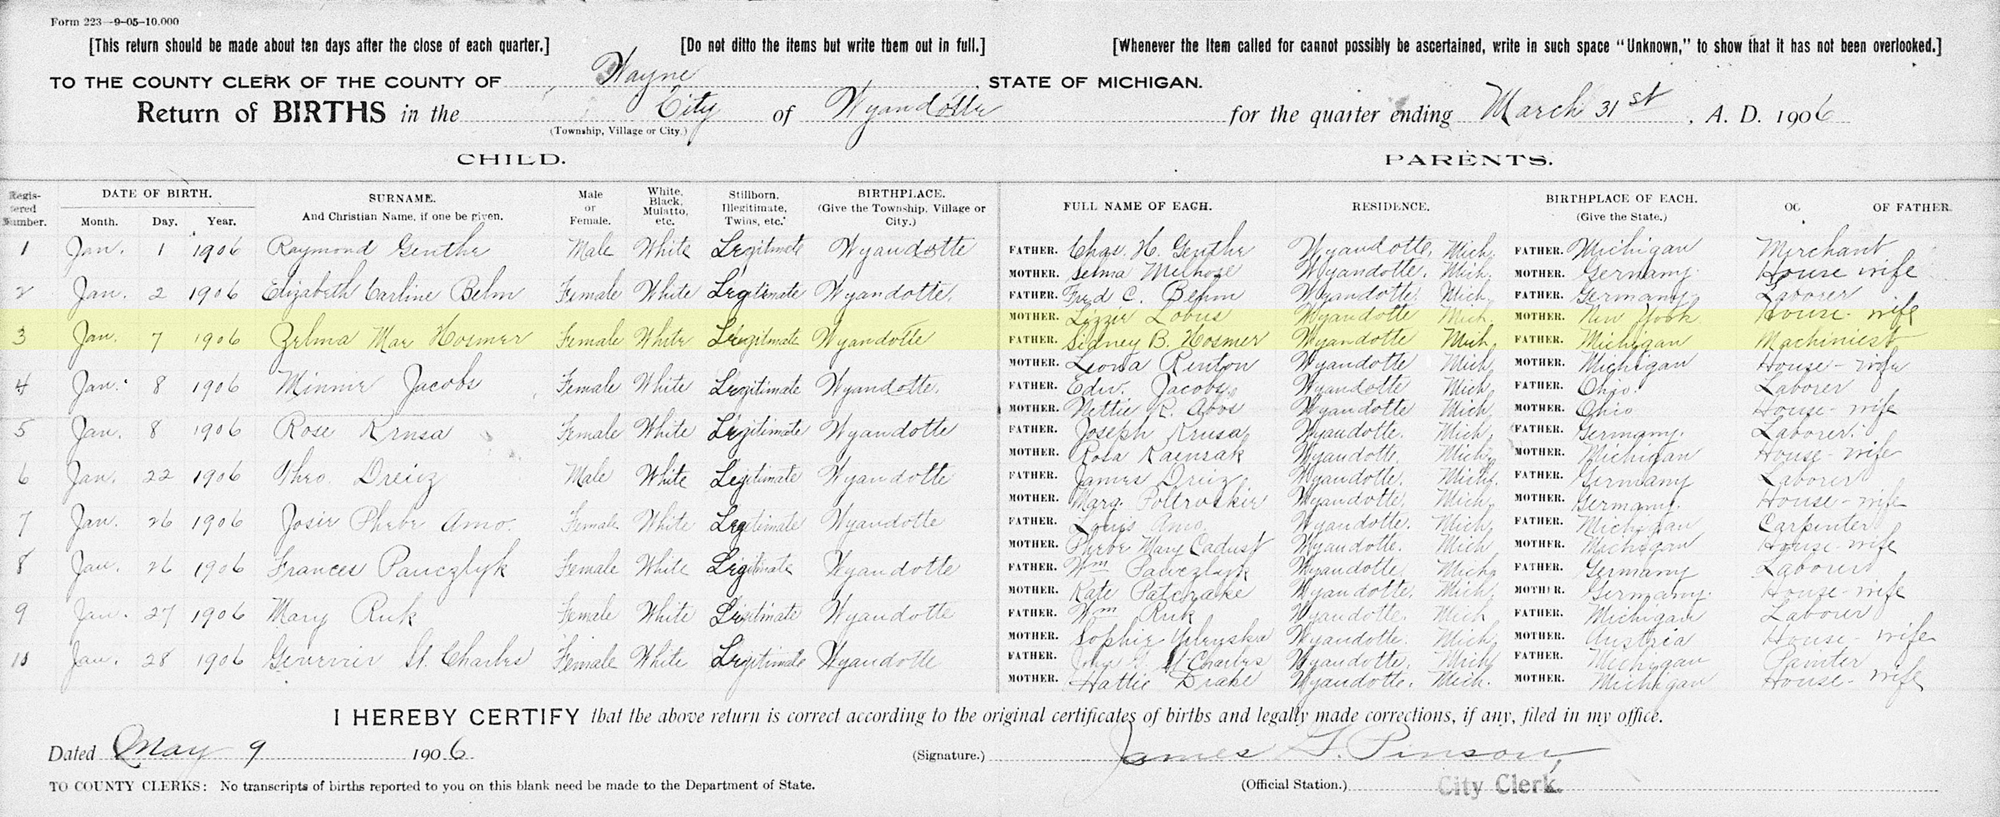 Form 223—9-05-10.000
[This return should be made about ten days after the close of each quarter.] [Do not ditto the items but write them out in full.] [Whenever the Item called for cannot possibly be ascertained, write in such space "Unknown," to show that it has not been overlooked.]
TO THE COUNTY CLERK OF THE COUNTY OF Wayne, STATE OF MICHIGAN.
Return of BIRTHS in the City of Wyandotte for the quarter ending March 31st, A. D. 1906
(Township, Village or City.)
CHILD. PARENTS.
Registered Number. DATE OF BIRTH. Month. Day. Year. SURNAME. And Christian Name, if one be given. Male or Female. White, Black, Mulatto, etc. Stillborn, Illegitimate, Twins, etc. BIRTHPLACE. (Give the Township, Village or City.) FULL NAME OF EACH. RESIDENCE. BIRTHPLACE OF EACH. (Give the State.) OC OF FATHER.
1 Jan. 1 1906 Raymond Genthe Male White Legitimate Wyandotte FATHER. Chas. H. Genthe Wyandotte, Mich. FATHER. Michigan Merchant
MOTHER. Selma Melhose Wyandotte. Mich. MOTHER. Germany. House wife
2 Jan. 2 1906 Elizabeth Carline Behm Female White Legitimate Wyandotte. FATHER. Fred C. Behm Wyandotte. Mich. FATHER. Germany. Laborer
MOTHER. Lizzie Lobus Wyandotte Mich. MOTHER. New York House-wife
3 Jan. 7 1906 Zelma Mae Hosmer Female White Legitimate Wyandotte FATHER. Sidney B. Hosmer Wyandotte Mich. FATHER. Michigan Machinist
MOTHER. Leona Renton Wyandotte Mich. MOTHER. Michigan House-wife
4 Jan. 8 1906 Minnie Jacobs Female White Legitimate Wyandotte. FATHER. Edw. Jacobs Wyandotte Mich. FATHER. Ohio. Laborer
MOTHER. Nettie R. Wyandotte Mich. MOTHER. Ohio House-wife
5 Jan. 8 1906 Rose Krusa Female White Legitimate Wyandotte FATHER. Joseph Krusa Wyandotte. Mich. FATHER. Germany. Laborer.
MOTHER. Rosa Wyandotte. Mich. MOTHER. Michigan House-wife
6 Jan. 22 1906 Theo. Dreiez Male White Legitimate Wyandotte FATHER. James Wyandotte. Mich. FATHER. Germany Laborer
MOTHER. Marg. Wyandotte. Mich. MOTHER. Germany. House-wife
7 Jan. 26 1906 Josie Phebe Amo. Female White Legitimate Wyandotte FATHER. Louis Amo. Wyandotte. Mich. FATHER. Michigan Carpenter
MOTHER. Phebe Mary Wyandotte. Mich MOTHER. Michigan House-wife
8 Jan. 26 1906 Frances Pawczlyk Female White Legitimate Wyandotte FATHER. Wm Pawczlyk Wyandotte Mich. FATHER. Germany Laborer
MOTHER. Kate Wyandotte. Mich. MOTHER. Germany. House-wife
9 Jan. 27 1906 Mary Ruk Female White Legitimate Wyandotte FATHER. Wm Ruk Wyandotte. Mich FATHER. Michigan Laborer
MOTHER. Sophie Wyandotte. Mich. MOTHER. Austria House-wife
10 Jan. 28 1906 Genevier St. Charles Female White Legitimate Wyandotte FATHER. St Charles Wyandotte, Mich. FATHER. Michigan Painter
MOTHER. Hattie Drake Wyandotte. Mich. MOTHER. Michigan House-wife
I HEREBY CERTIFY that the above return is correct according to the original certificates of births and legally made corrections, if any, filed in my office.
Dated May 9 1906. (Signature.) James T. Pinson,
TO COUNTY CLERKS: No transcripts of births reported to you on this blank need be made to the Department of State. (Official Station.) City Clerk.